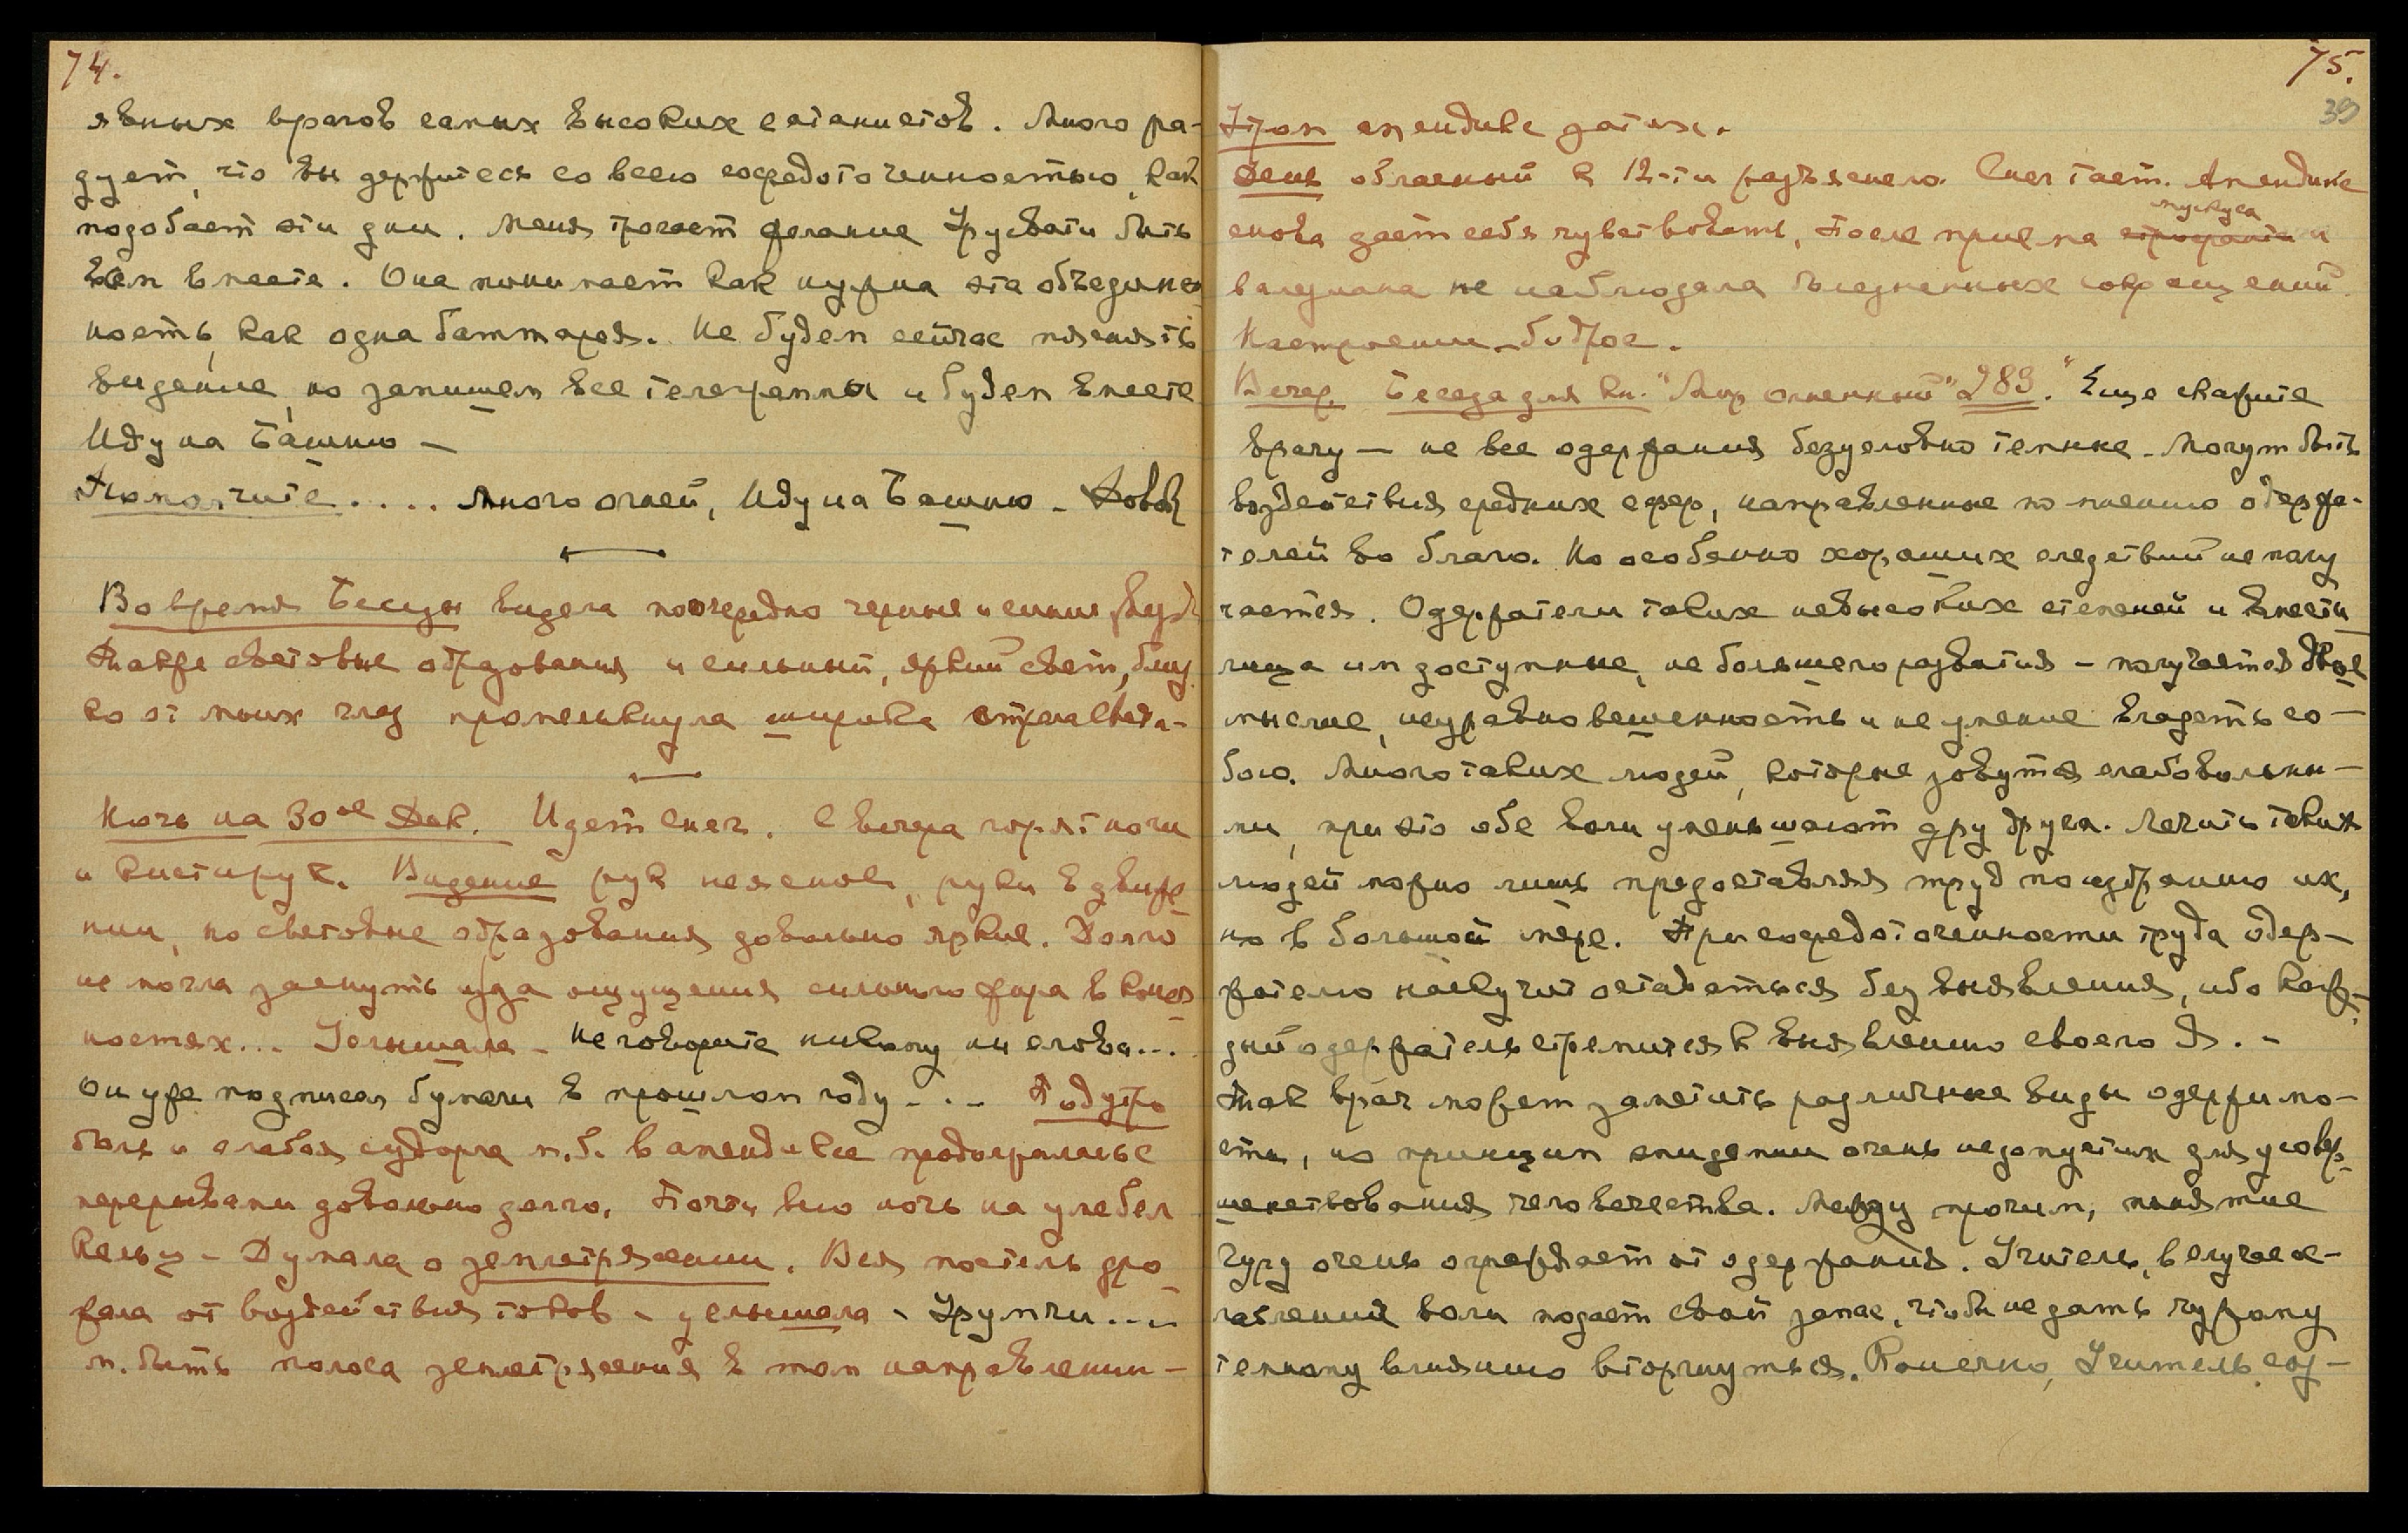 74.
явных врагов самых высоких сатанистов. Много ра-
дует, что вы держитесь со всею сосредоточенностью, как
подобает эти дни. Меня трогает желание Урусвати быть
всем вместе. Она понимает как нужна эта объединен
ность, как одна баттарея. Не будем сейчас пояснять
видение, но запишем все телеграммы и будем вместе
Иду на Башню —
Помолчите .... Много огней, Иду на Башню – Довол
Во время Беседы видела поочередно черные и синие звезды
Также световые образования и сильный, яркий свет, близ
ко от моих глаз промелькнула широка стрела света –
Ночь на 30ое Дек. Идет снег. С вечера горят ноги
и кисти рук. Видение рук неясное, руки в движе
нии, но световые образования довольно яркие. Долго
не могла заснуть из за ощущения сильного жара в конеч
ностях... Услышала – Не говорите никому ни слова...
Он уже подписал бумаги в прошлом году – . – Под утро
боль и слабая судорга м.б. в апендиксе продолжались с
перерывами довольно долго. Почти всю ночь на улебел
Кельц – Думала о землетрясении. Вся постель дро
жала от воздействия токов – услышала – Урумчи....
м. быть полоса землетрясения в том направлении –
75.
39
Утром апендикс затих.
День облачный к 12-ти разъяснело. Снег тает. Апендикс
мускуса
снова дает себя чувствовать, после приема строфанта и
валериана не наблюдала болезненных сокращений.
Настроение – бодрое.
Вечер. Беседа для кн. "Мир Огненный" 283. "Еще скажите
врачу — не все одержания безусловно темные. Могут быть
воздействия средних сфер, направленные по мнению одержа-
телей во благо. Но особенно хороших следствий не полу
чается. Одержатели таких невысоких степеней и вмести
лища им доступные, не большего развития – получается двое
мыслие, неуравновешенность и не умение владеть со —
бою. Много таких людей, которые зовутся слабовольны —
ми, при это обе воли уменьшают дру друга. Лечить таких
людей можно лишь предоставляя труд по избранию их,
но в большой мере. При сосредоточенности труда одер —
жателю наскучит оставаться без выявления, ибо каж-
дый одержатель стремится к выявлению своего Я. –
Так врач может заметить различные виды одержимо —
сти, но принцип эпидемии очень недопустим для усовер-
шенствования человечества. Между прочим, понятие
Гуру очень ограждает от одержания. Учитель, в случае о-
слабления воли подает свой запас, чтобы не дать чужому
темному влиянию вторгнуться. Конечно, Учитель, соз —